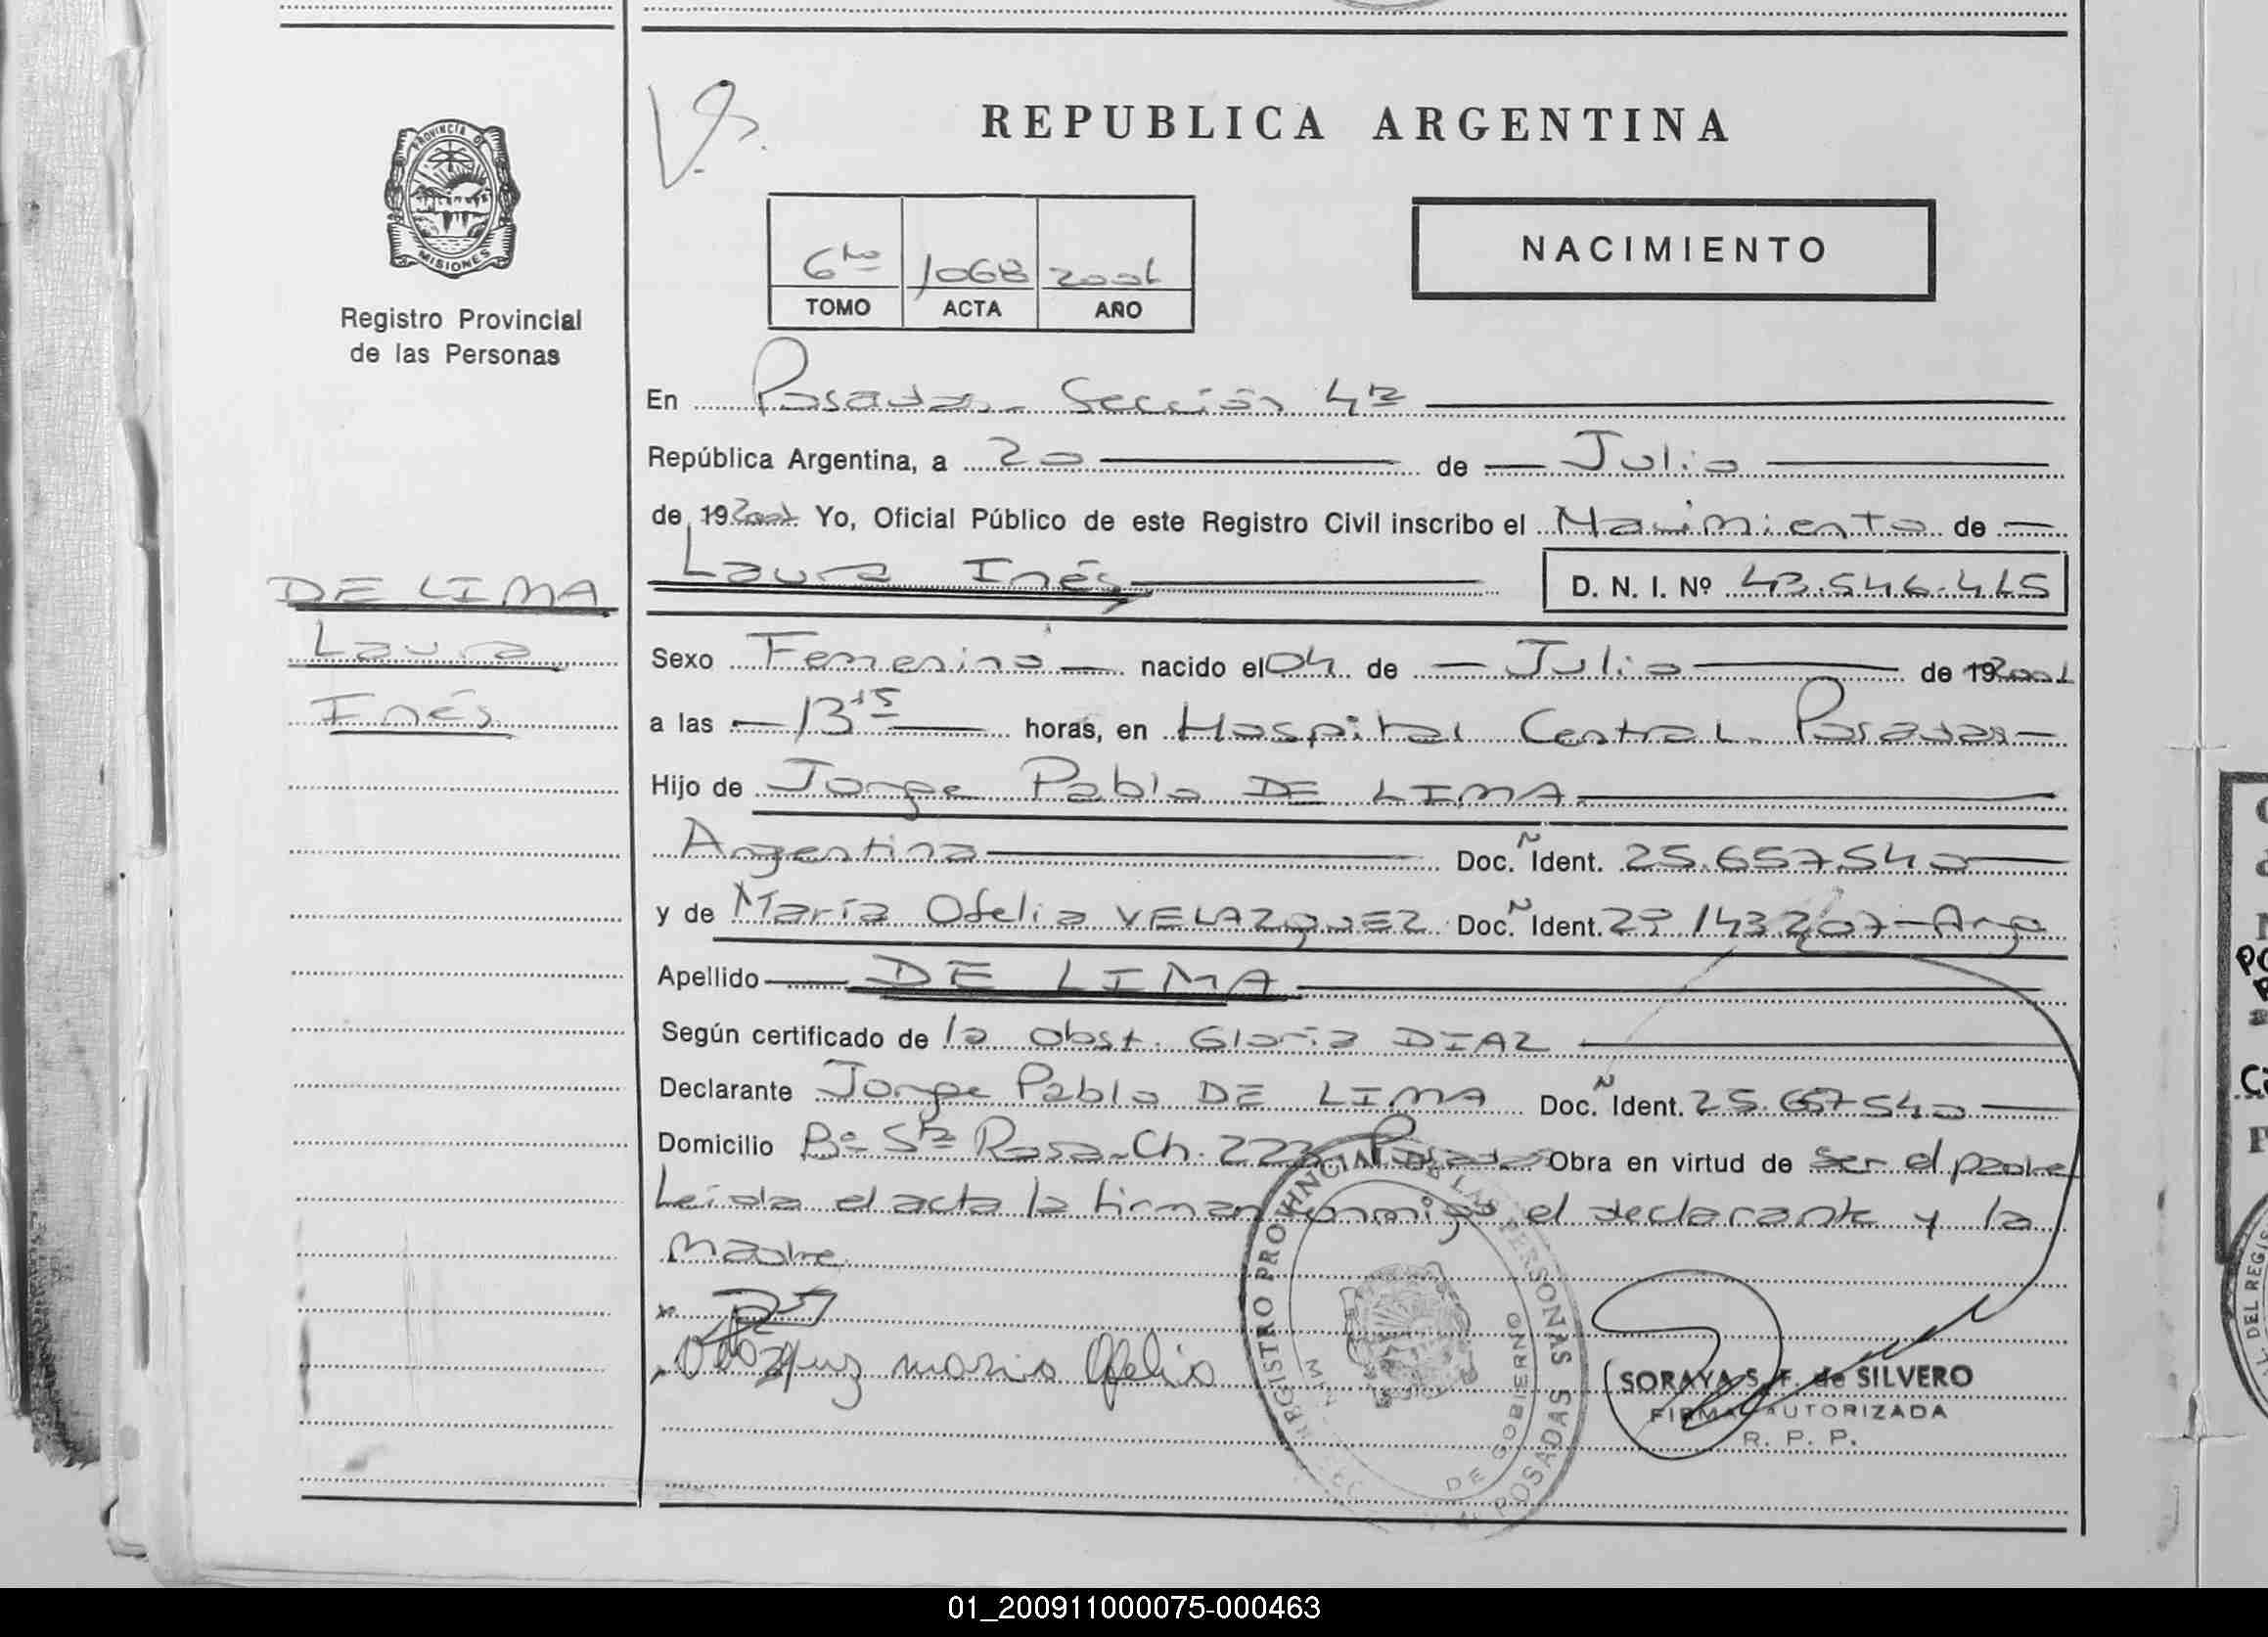 REPUBLICA ARGENTINA
PROVINCIA DE
MISIONES
Registro Provincial
de las Personas
6to 1068 2001
TOMO ACTA AÑO
NACIMIENTO
En Posadas - Sección 4ta
República Argentina, a 20 de Julio
de 19 2001 Yo, Oficial Público de este Registro Civil inscribo el Nacimiento de
Laura Inés D. N. I. Nº 43.546.415
DE LIMA
Laura
Inés
Sexo Femenino nacido el 04 de Julio de 19 2001
a las 13 15 horas, en Hospital Central Posadas
Hijo de Jorge Pablo DE LIMA
Argentina Doc. Ñ Ident. 25.657.540
y de María Ofelia VELAZQUEZ Doc. Ñ Ident. 29.143.207 - Arg
Apellido DE LIMA
Según certificado de la Obst. Gloria DIAZ
Declarante Jorge Pablo DE LIMA Doc. Ñ Ident. 25.657.540
Domicilio Bº Sta Rosa - Ch. 223 Posadas Obra en virtud de ser el padre
Leída el acta la firman conmigo el declarante y la
madre.
Velazquez maria Ofelia
REGISTRO PROVINCIAL DE LAS PERSONAS
DE GOBIERNO
POSADAS
SORAYA S. F. de SILVERO
FIRMA AUTORIZADA
R. P. P.
DEL REGIS
01_200911000075-000463